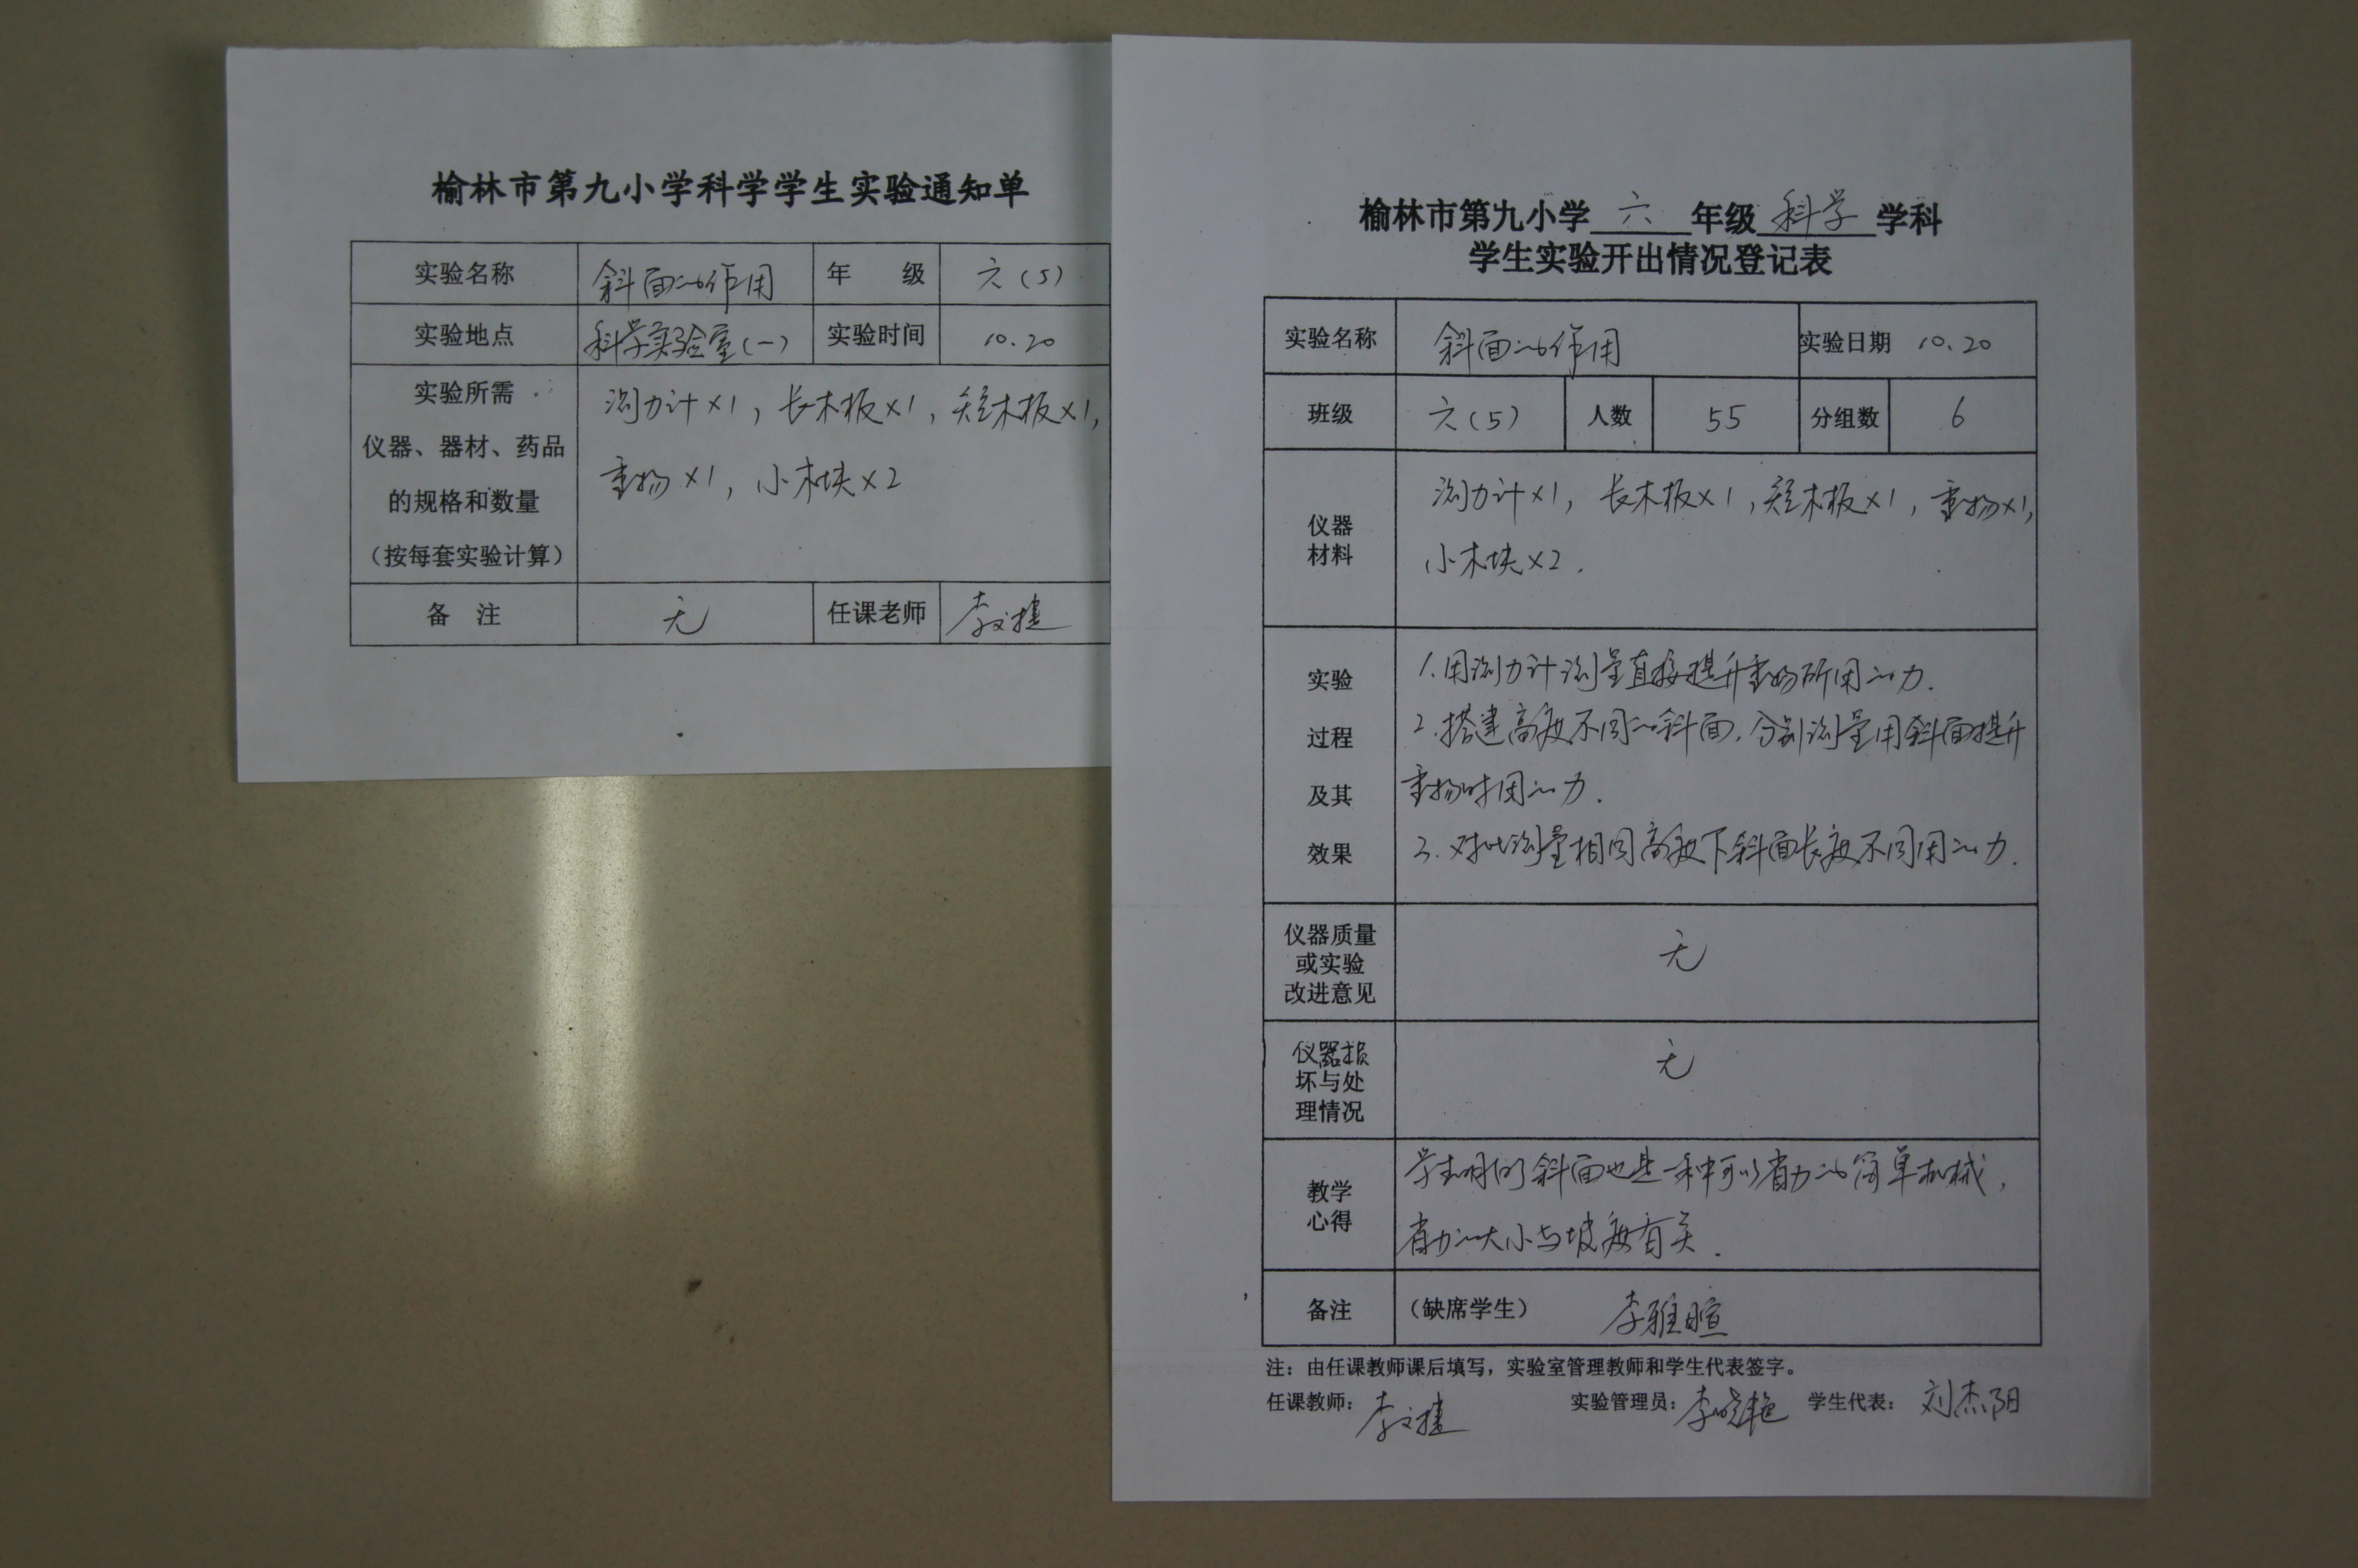 榆林市第九小学科学学生实验通知单
实验名称 斜面的作用 年 级 六(5)
实验地点 科学实验室(一) 实验时间 10.20
实验所需
仪器、器材、药品
的规格和数量
(按每套实验计算)
测力计×1, 长木板×1, 短木板×1,
重物×1, 小木块×2
备 注 无 任课老师 李文捷
榆林市第九小学 六 年级 科学 学科
学生实验开出情况登记表
实验名称 斜面的作用 实验日期 10.20
班级 六(5) 人数 55 分组数 6
仪器
材料
测力计×1, 长木板×1, 短木板×1, 重物×1,
小木块×2.
实验
过程
及其
效果
1.用测力计测量直接提升重物所用的力.
2.搭建高度不同的斜面,分别测量用斜面提升
重物时用的力.
3.对比测量相同高度下斜面长度不同用的力.
仪器质量
或实验
改进意见
无
仪器损
坏与处
理情况
无
教学
心得
学生明白了斜面也是一种可以省力的简单机械,
省力的大小与坡度有关.
备注 (缺席学生) 李雅暄
注:由任课教师课后填写,实验室管理教师和学生代表签字。
任课教师: 李文捷 实验管理员: 李晓艳 学生代表: 刘杰阳